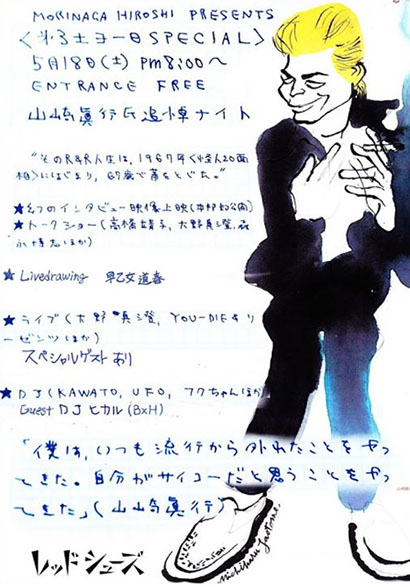 MORINAGA HIROSHI PRESENTS
〈第3土ヨー日SPECIAL〉
5月18日(土) pm8:00〜
ENTRANCE FREE
山崎眞行氏追悼ナイト
"そのR&R人生は, 1967年〈怪人20面
相〉にはじまり, 67歳で幕をとじた。"
★幻のインタビュー映像上映(本邦初公開)
★トークショー(高橋靖子, 大野真澄, 森
永博志ほか)
★Livedrawing 早乙女道春
★ライブ(大野真澄, YOU-DIE&リ
ーゼンツほか)
スペシャルゲストあり
★DJ(KAWATO, UFO, フクちゃんほか)
Guest DJ ヒカル(BxH)
「僕は, いつも流行から外れたことをやっ
てきた。自分がサイコーだと思うことをやっ
てきた」(山崎眞行)
レッドシューズ
Michiharu Saotome.